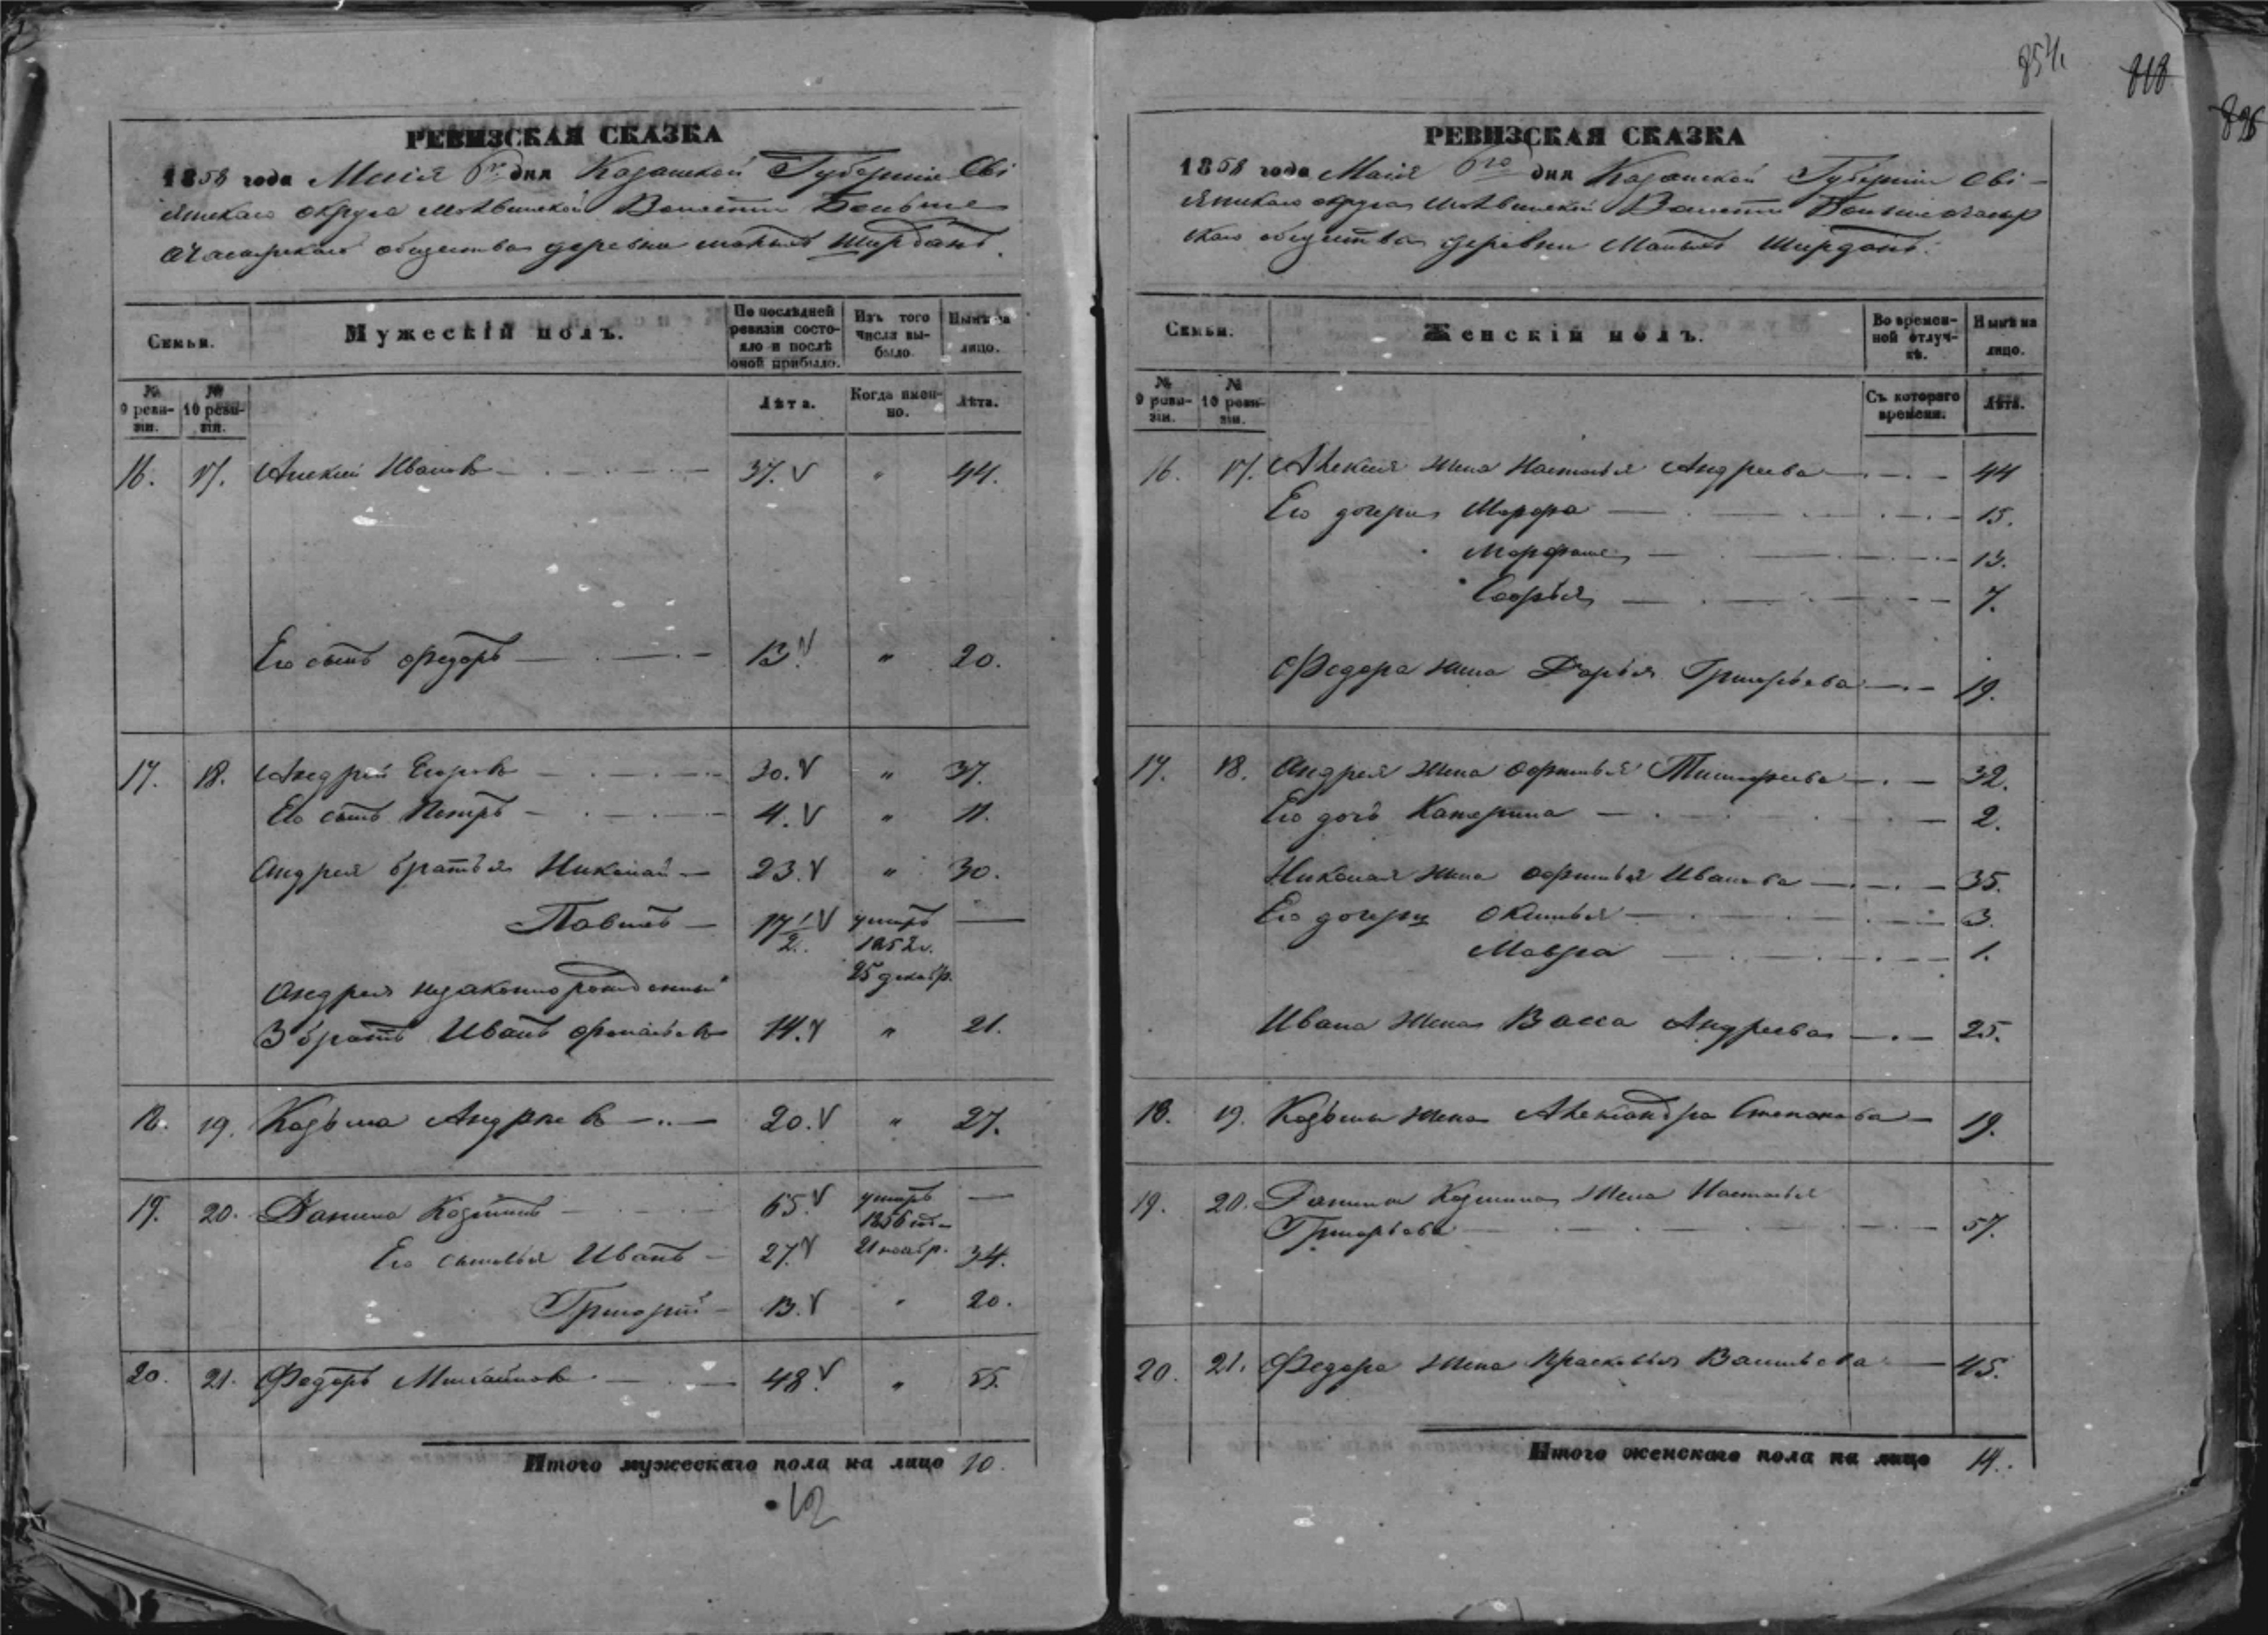 85½
818
896
РЕВИЗСКАЯ СКАЗКА
1858 года Маія 6го дня Казанской Губерніи Сві
яжскаго округа Волости Больше
ачасырскаго общества деревни Малыхъ Ширданъ.
Семьи.
Мужескій полъ.
По послѣдней ревизіи состо-
яло и послѣ
оной прибыло.
Изъ того
числа вы-
было.
Нынѣ на
лицо.
№
9 реви-
зіи.
№
10 реви-
зіи.
Лѣта.
Когда имен-
но.
Лѣта.
16. 17. Алексѣй Ивановъ 37. " 44.
Его сынъ Федоръ 13. " 20.
17. 18. Андрей Егоровъ 30. " 37.
Его сынъ Петръ 4. " 11.
Андрея братья Николай 23. " 30.
Павелъ 17 1/2 умеръ
1852 г.
25 декабр.
Андрея незаконнорожденный
3 братъ Иванъ 14. " 21.
18. 19. Козьма Андреевъ 20. " 27.
19. 20. Данила Козминъ 65. умеръ
1856 го
21 ноябр.
Его сыновья Иванъ 27. 34.
Григорій 13. " 20.
20. 21. Федоръ Михайловъ 48. " 55.
Итого мужескаго пола на лицо 10.
12
РЕВИЗСКАЯ СКАЗКА
1858 года Маія 6го дня Казанской Губерніи Сві-
яжскаго округа Волости Большеачасыр
скаго общества деревни Малыхъ Ширданъ.
Семьи.
Женскій полъ.
Во времен-
ной отлуч-
кѣ.
Нынѣ на
лицо.
№
9 реви-
зіи.
№
10 реви-
зіи.
Съ котораго
времени.
Лѣта.
16. 17. Алексѣя жена Настасья Андреева 44
Его дочери Марфа 15.
13.
Софья 7.
Федора жена Дарья Григорьева 19.
17. 18. Андрея жена Офимья 32.
Его дочь Катерина 2.
Николая жена Офимья Иванова 35.
Его дочери Окинья 3.
Мавра 1.
Ивана жена Васса Андреева 25.
18. 19. Козьмы жена Александра Степанова 19.
19. 20. Данилы Козмина жена Настасья
Григорьева 57.
20. 21. Федора жена Прасковья Васильева 45.
Итого женскаго пола на лицо 14.